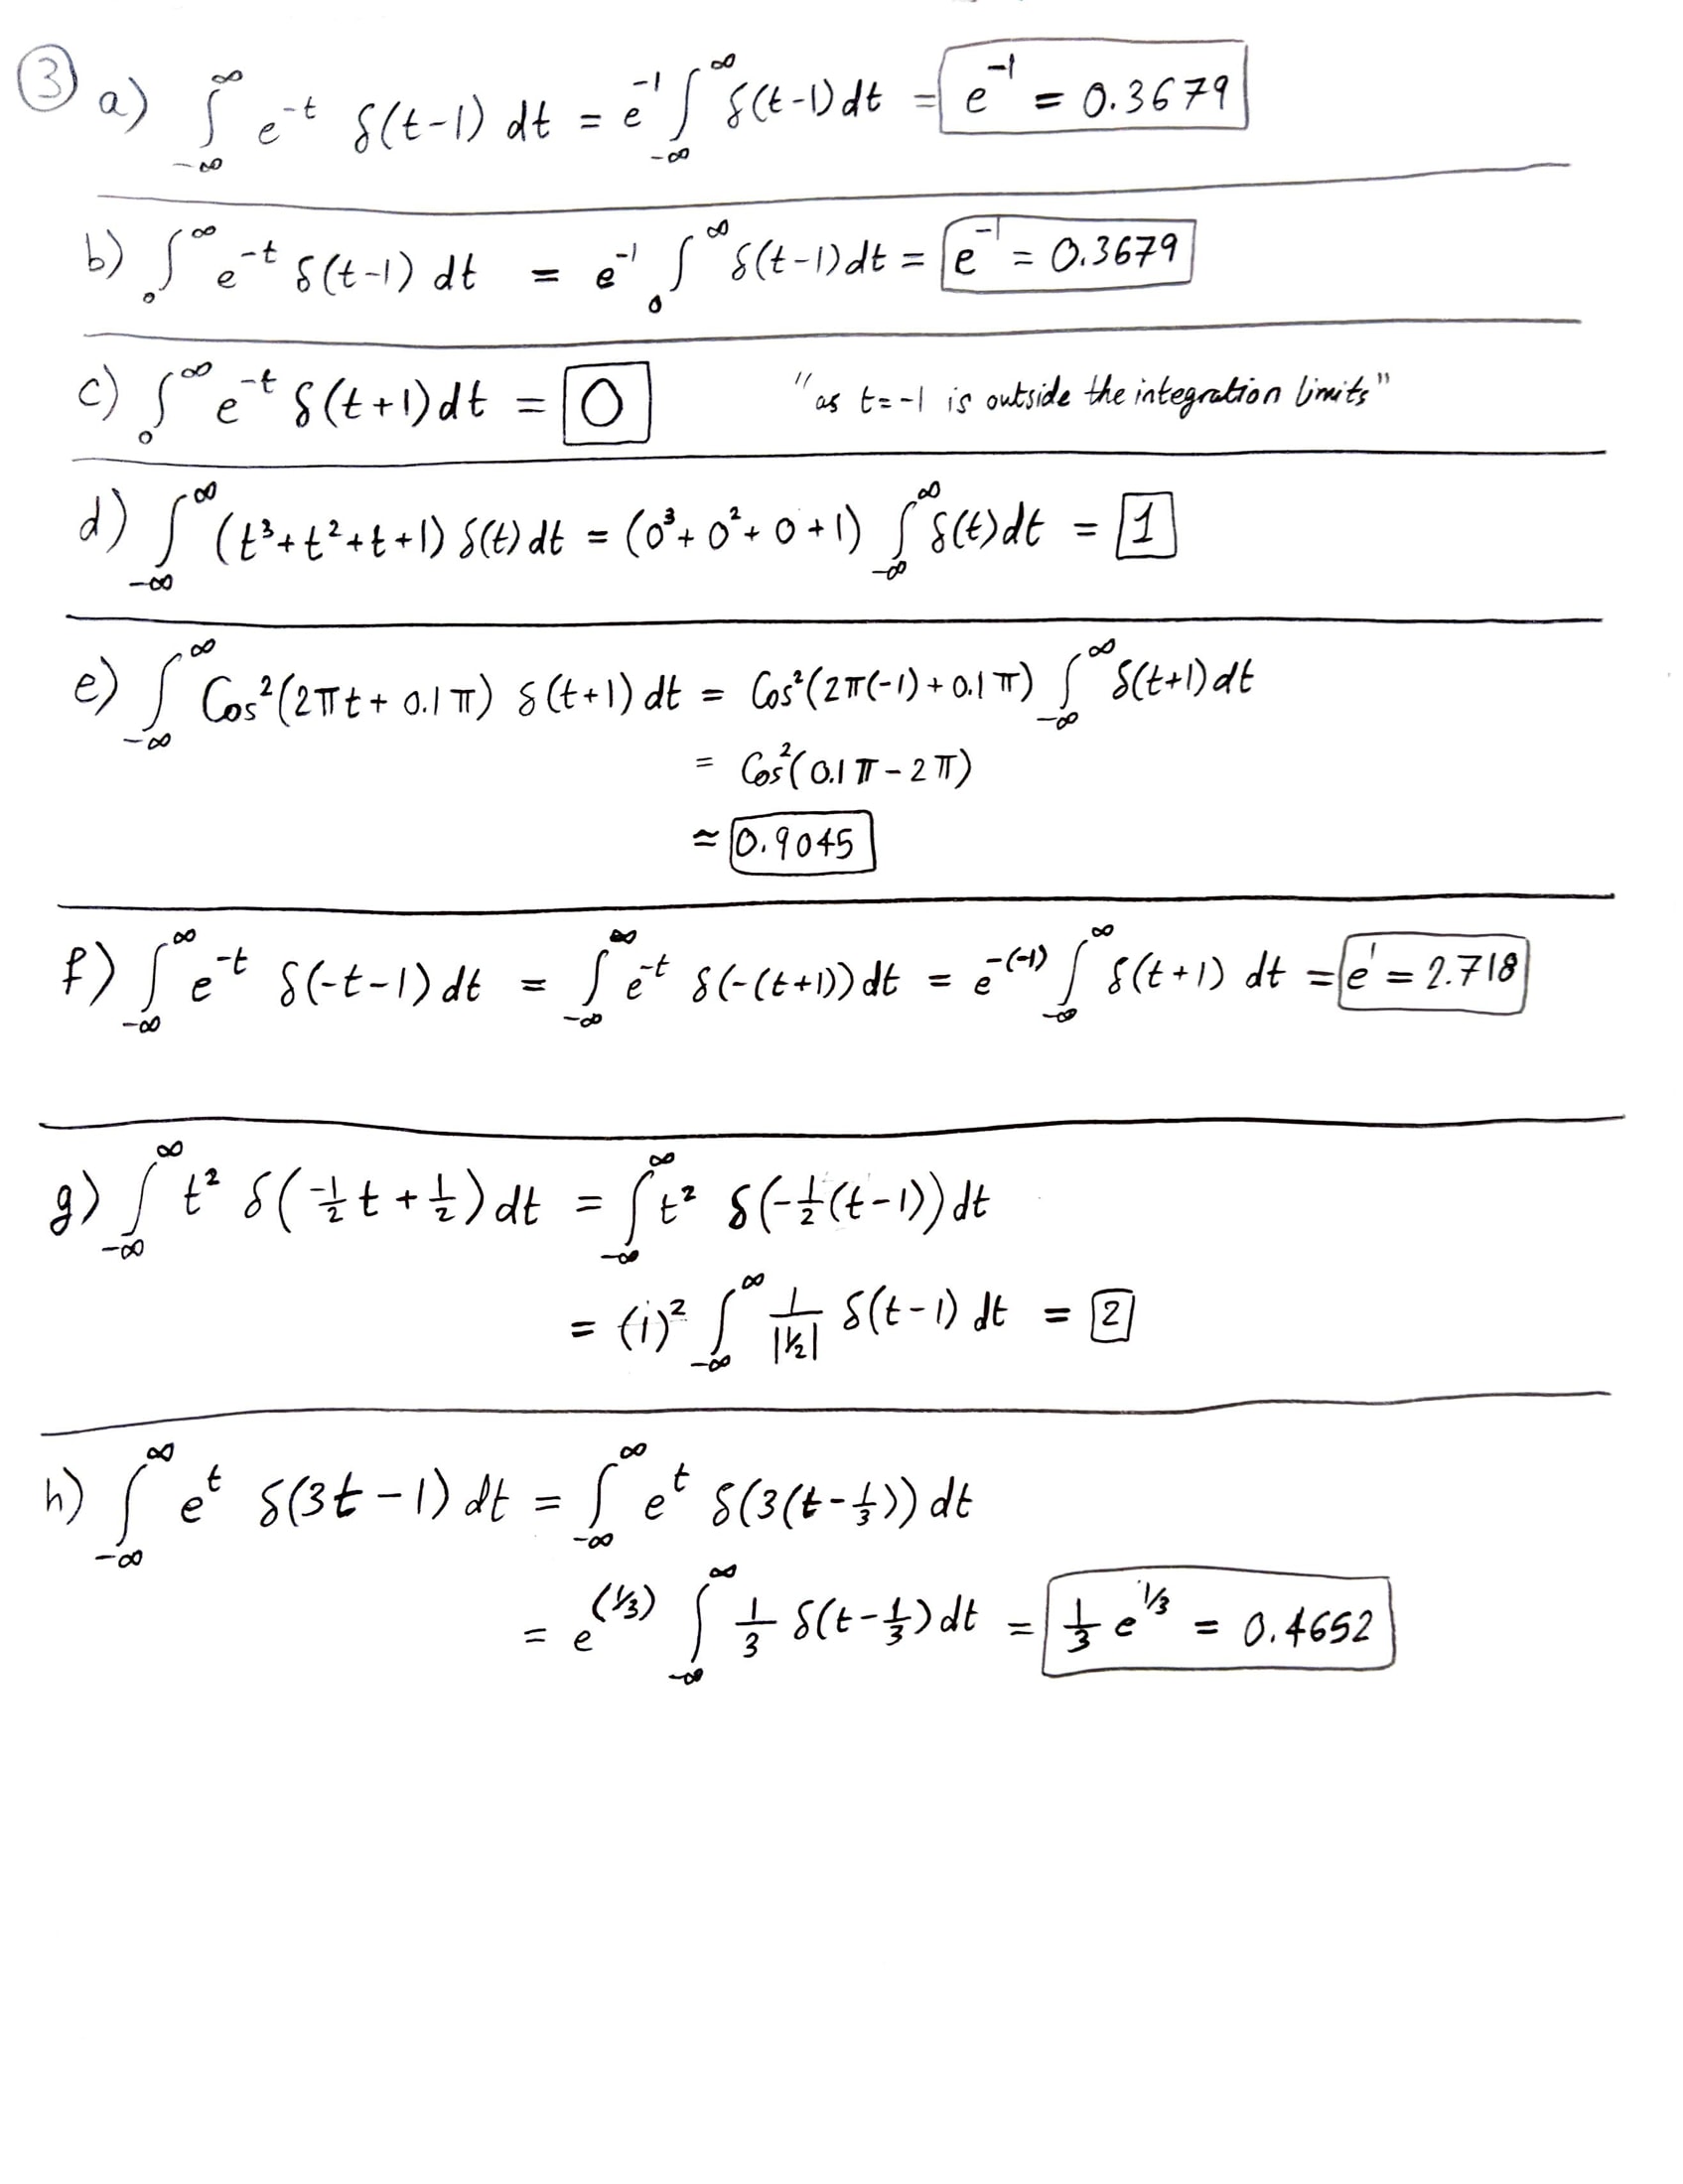 ③ a) ∫_{-∞}^{∞} e^{-t} δ(t-1) dt = e^{-1} ∫_{-∞}^{∞} δ(t-1) dt = e^{-1} = 0.3679
b) ∫_{0}^{∞} e^{-t} δ(t-1) dt = e^{-1} ∫_{0}^{∞} δ(t-1) dt = e^{-1} = 0.3679
c) ∫_{0}^{∞} e^{-t} δ(t+1) dt = 0 "as t=-1 is outside the integration limits"
d) ∫_{-∞}^{∞} (t³+t²+t+1) δ(t) dt = (0³+0²+0+1) ∫_{-∞}^{∞} δ(t) dt = 1
e) ∫_{-∞}^{∞} Cos²(2πt + 0.1π) δ(t+1) dt = Cos²(2π(-1)+0.1π) ∫_{-∞}^{∞} δ(t+1) dt
= Cos²(0.1π - 2π)
≃ 0.9045
f) ∫_{-∞}^{∞} e^{-t} δ(-t-1) dt = ∫_{-∞}^{∞} e^{-t} δ(-(t+1)) dt = e^{-(-1)} ∫_{-∞}^{∞} δ(t+1) dt = e^{1} = 2.718
g) ∫_{-∞}^{∞} t² δ(-1/2 t + 1/2) dt = ∫_{-∞}^{∞} t² δ(-1/2(t-1)) dt
= (1)² ∫_{-∞}^{∞} 1/|1/2| δ(t-1) dt = 2
h) ∫_{-∞}^{∞} e^{t} δ(3t-1) dt = ∫_{-∞}^{∞} e^{t} δ(3(t-1/3)) dt
= e^{(1/3)} ∫_{-∞}^{∞} 1/3 δ(t-1/3) dt = 1/3 e^{1/3} = 0.4652